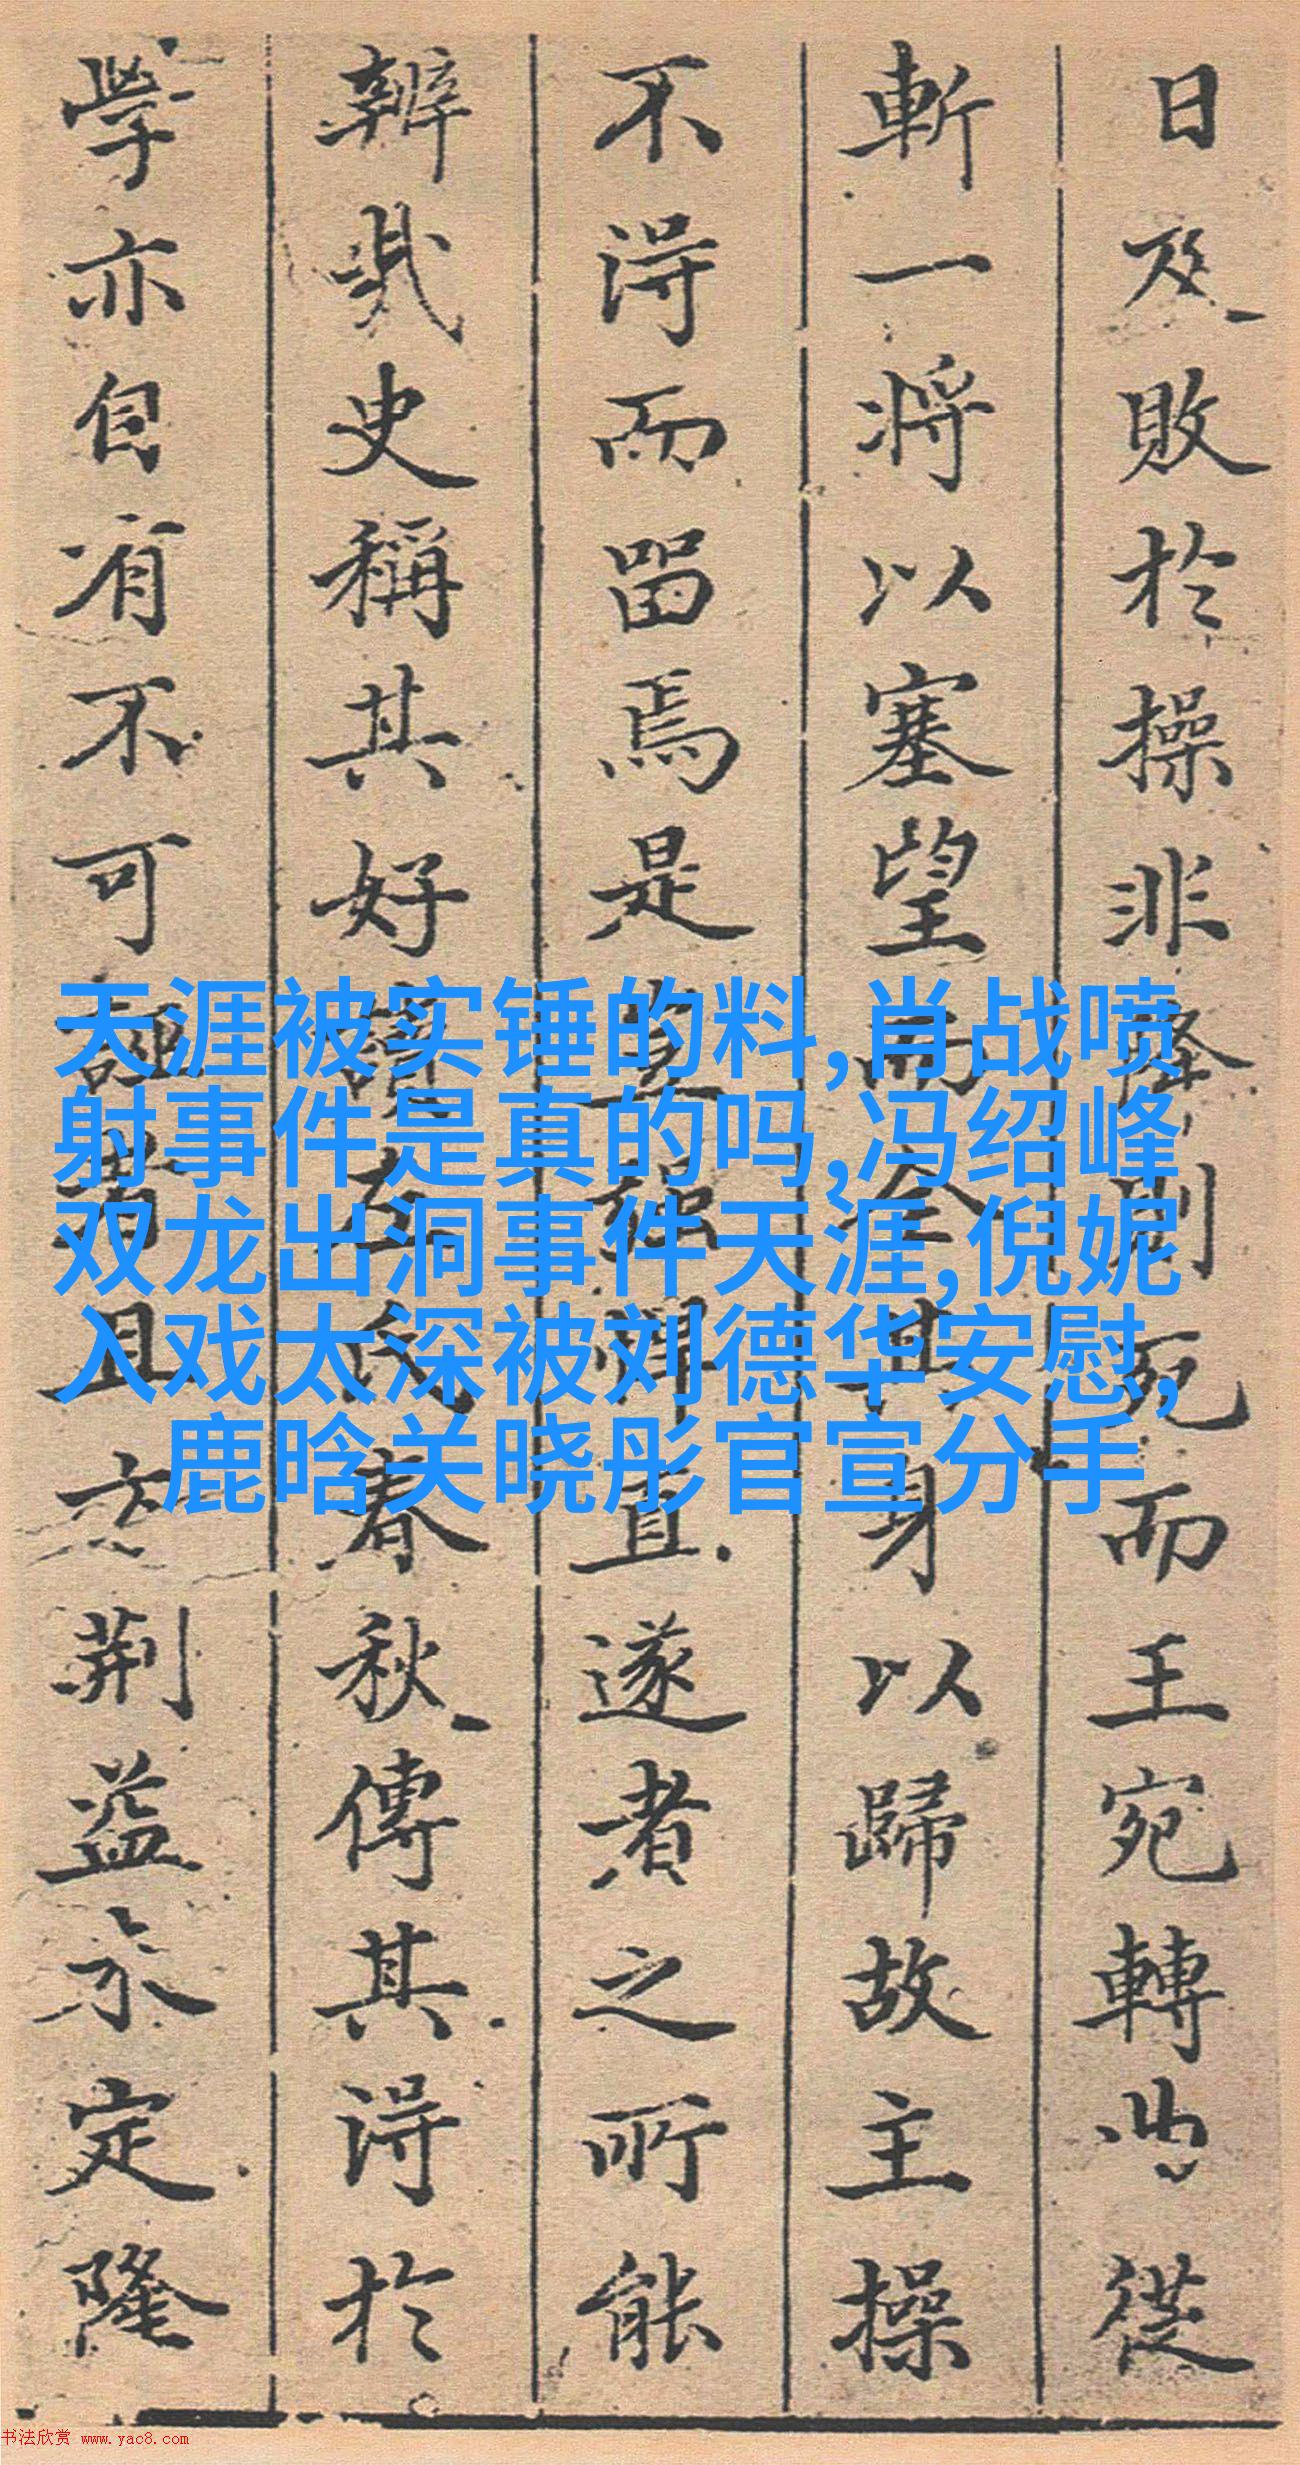 日及敗於操非降則死而王宛轉曲從
斬一将以塞望而全其身以歸故主操
不得而留焉是豈強悍直遂者之所能
辨哉史稱其好讀左氏春秋傳其得於
學亦自有不可誣者且方荆益未定隆
天涯被实锤的料,肖战喷
射事件是真的吗,冯绍峰
双龙出洞事件天涯,倪妮
入戏太深被刘德华安慰,
鹿晗关晓彤官宣分手
书法欣赏 www.yac8.com